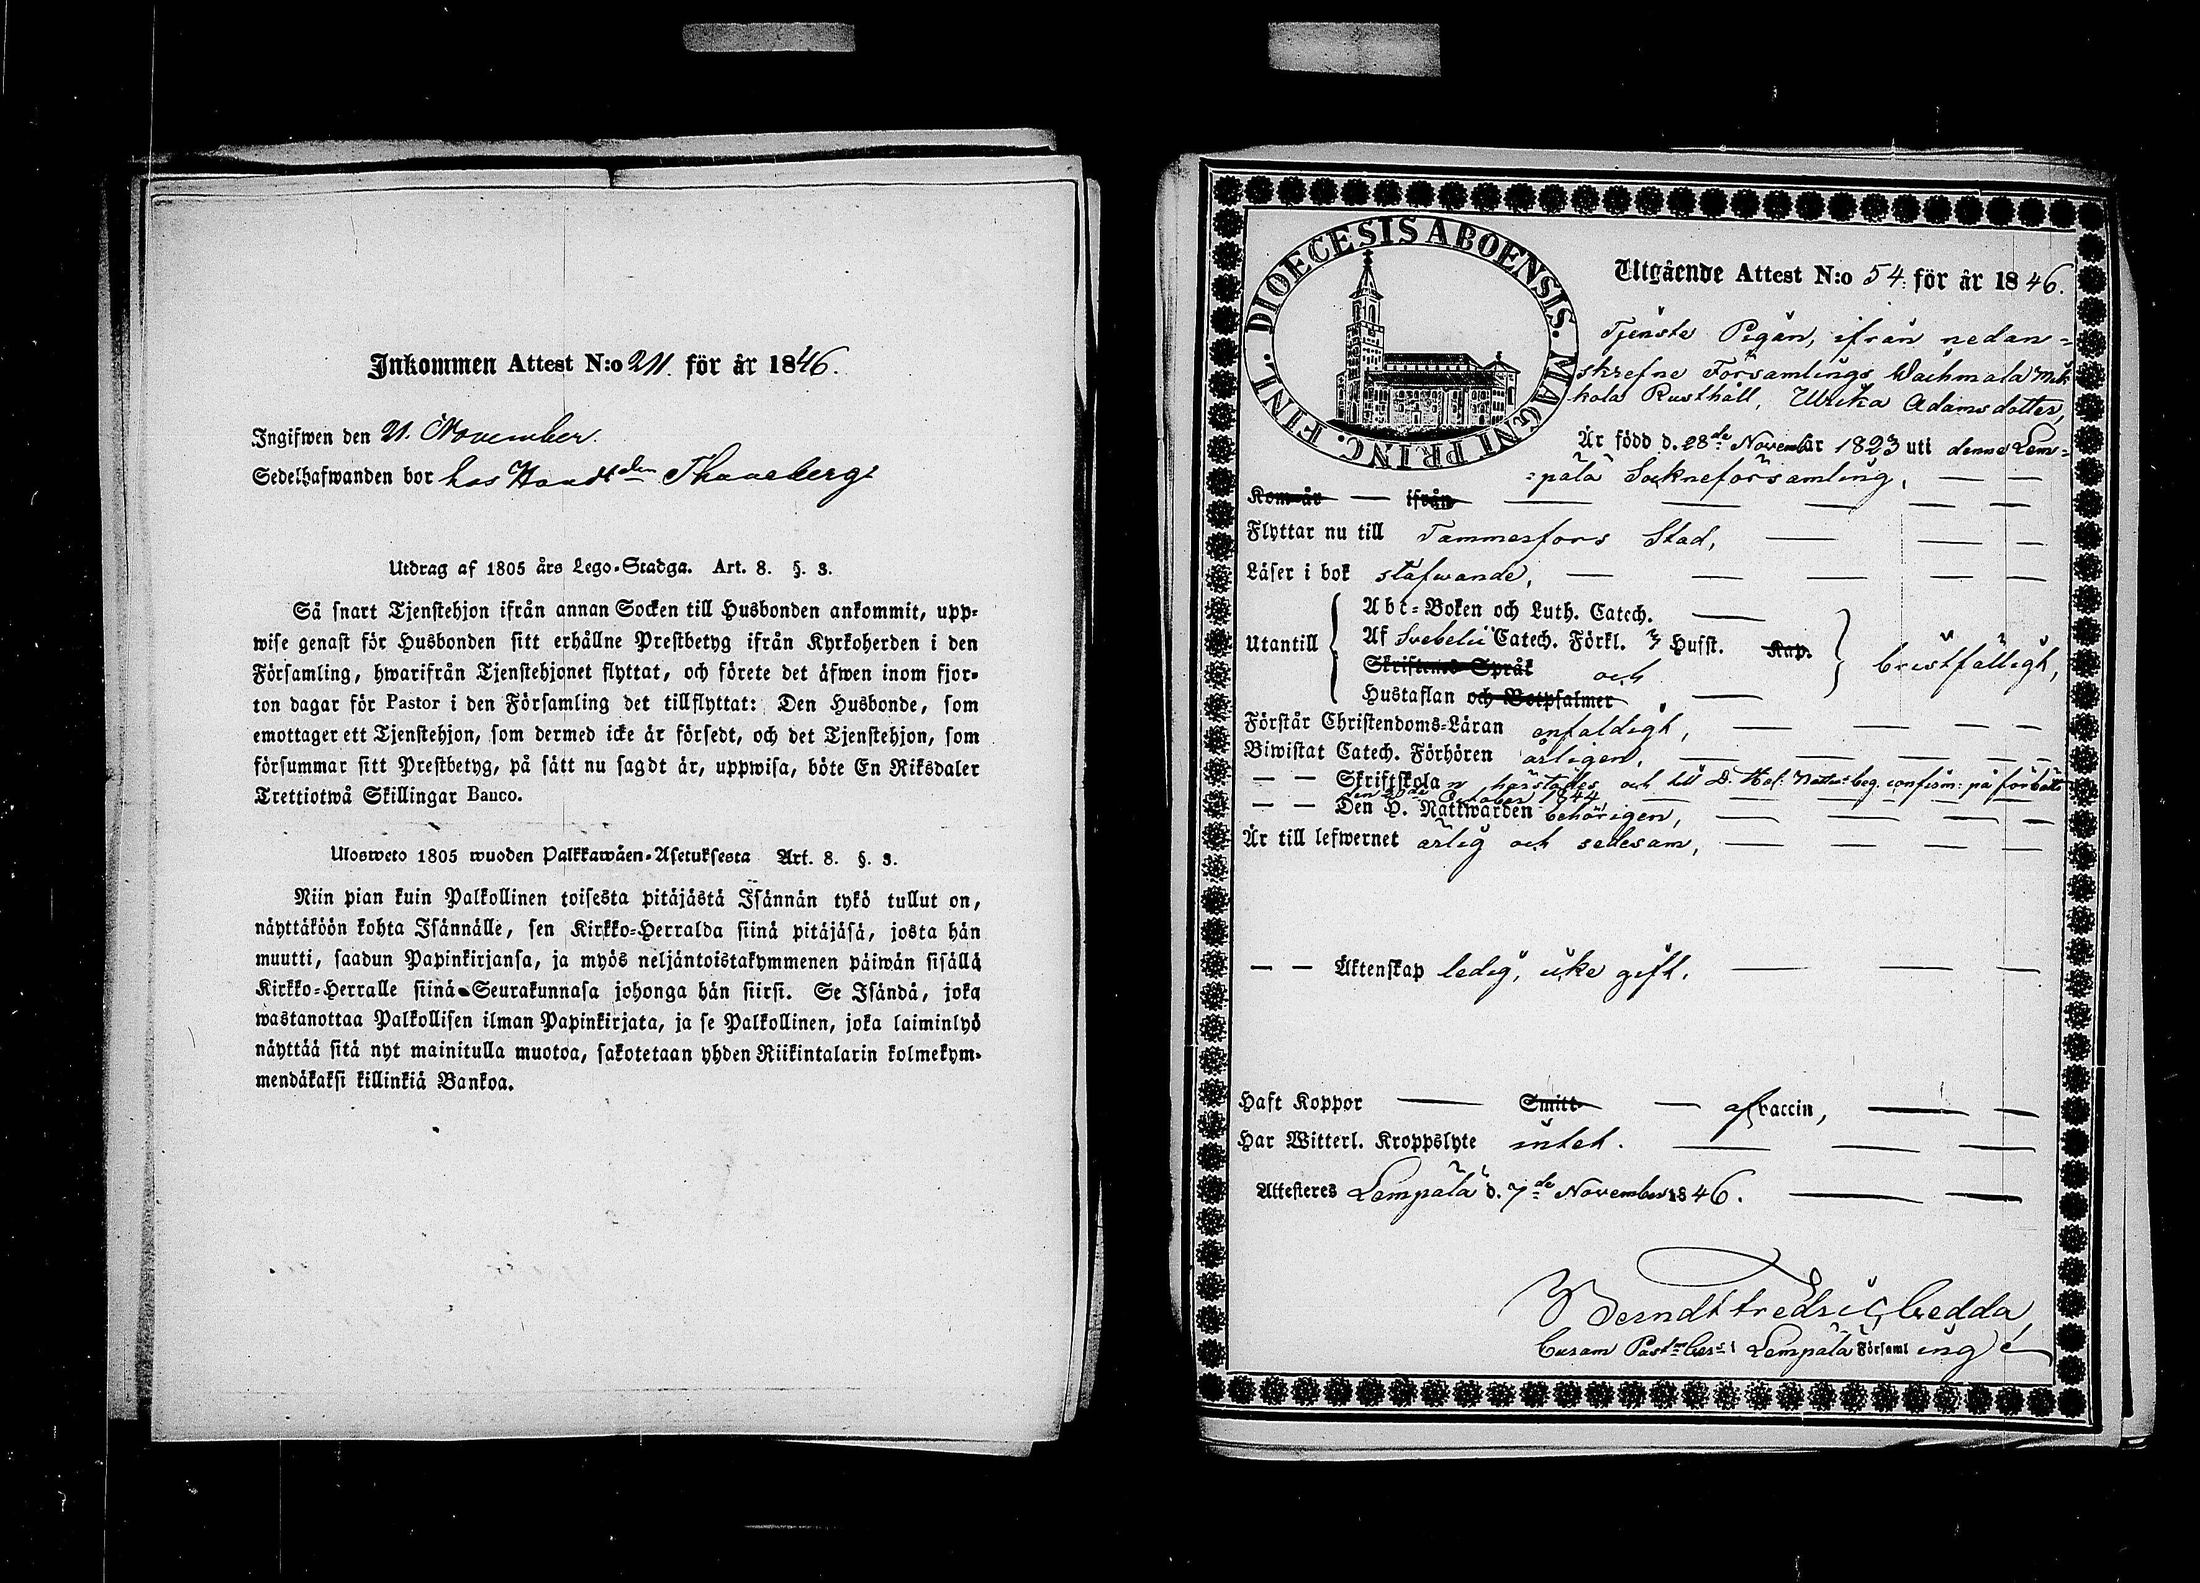 Inkommen Attest N:o 211. för år 1846.
Ingifwen den 21. November.
Sedelhafwanden bor hos Handl:den Thuneberg:
Utdrag af 1805 års Lego-Stadga. Art. 8. §. 3.
Så snart Tjenstehjon ifrån annan Socken till Husbonden ankommit, upp-
wise genast för Husbonden sitt erhållne Prestbetyg ifrån Kyrkoherden i den
Församling, hwarifrån Tjenstehjonet flyttat, och förete det äfwen inom fjor-
ton dagar för Pastor i den Församling det tillflyttat: Den Husbonde, som
emottager ett Tjenstehjon, som dermed icke är försedt, och det Tjenstehjon, som
försummar sitt Prestbetyg, på sätt nu sagdt är, uppwisa, böte En Riksdaler
Trettiotwå Skillingar Banco.
Ulosweto 1805 wuoden Palkkawäen-Asetuksesta Art. 8. §. 3.
Niin pian kuin Palkollinen toisesta pitäjästä Isännän tykö tullut on,
näyttäköön kohta Isännälle, sen Kirkko-Herralda siinä pitäjäsä, josta hän
muutti, saadun Papinkirjansa, ja myös neljäntoistakymmenen päiwän sisällä
Kirkko-Herralle siinä Seurakunnasa johonga hän siirsi. Se Isändä, joka
wastanottaa Palkollisen ilman Papinkirjata, ja se Palkollinen, joka laiminlyö
näyttää sitä nyt mainitulla muotoa, sakotetaan yhden Riikintalarin kolmekym-
mendäkaksi killinkiä Bankoa.
DIOECESIS ABOENSIS. MAGNI PRINC. FINL.
Utgående Attest N:o 54. för år 1846.
Tjenste Pigan, ifrån nedan-
skrefne Församlings Waihmala Mik
kola Rusthåll, Ulrika Adamsdotter,
Är född d. 28de Novemb är 1823 uti denne Lem-
=pälä Sockneförsamling,
Kom år ifrån
Flyttar nu till Tammerfors Stad,
Läser i bok stafwande,
Abc-Boken och Luth. Catech.
Utantill Af Svebelii Catech. Förkl. 3 Hufst. Kap. bristfälligt,
Skriftenes Språk och
Hustaflan och Botpsalmer
Förstår Christendoms-Läran enfaldigt,
Biwistat Catech. Förhören årligen,
— — Skriftskolan härstädes och till D. Hel: Nattv: beg. confirm: på förbätt
den October 1844
— — Den H. Nattwarden behörigen,
Är till lefwernet ärlig och sedesam,
— — Äktenskap ledig, icke gift.
Haft Koppor Smitt af vaccin,
Har Witterl. Kroppslyte intet.
Attesteres Lempälä d. 7de November 1846.
Berndt Fredric Gedda
Curam Past: Ger: i Lempälä Församling